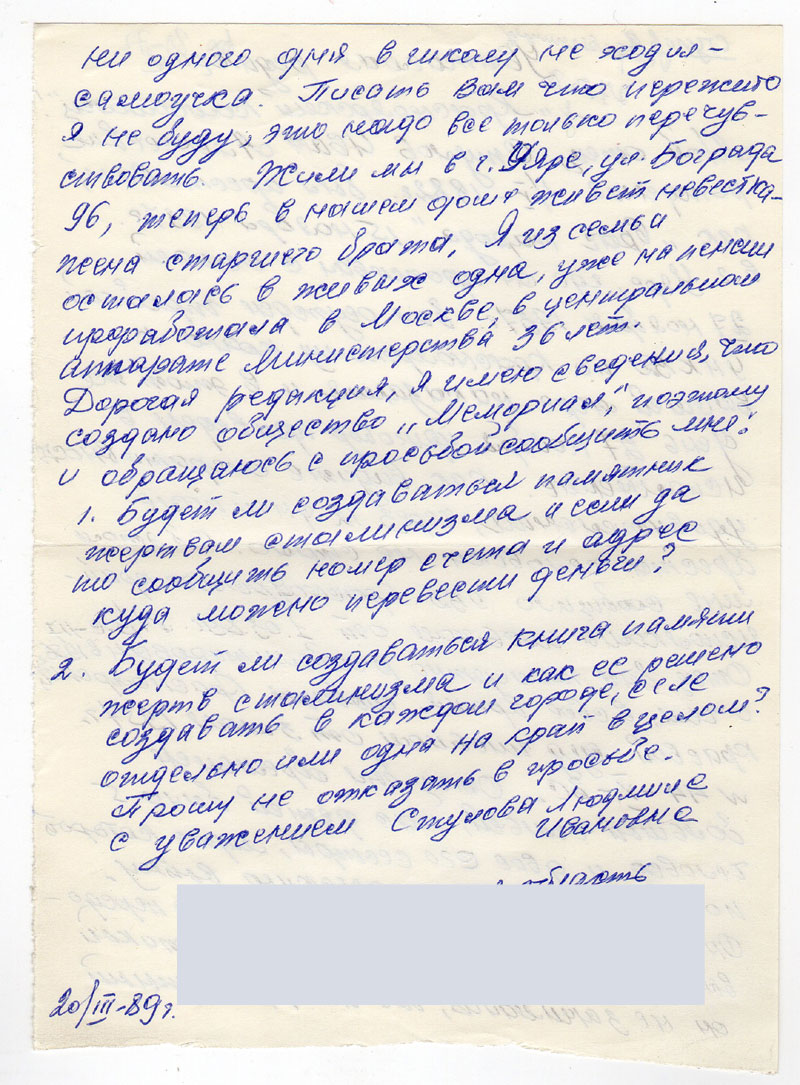 ни одного дня в школу не ходил –
самоучка. Писать Вам что пережито
я не буду, это надо все только перечув-
ствовать. Жили мы в г. Уяре, ул. Бограда
96, теперь в нашем доме живет невестка –
жена старшего брата, Я из семьи
осталась в живых одна, уже на пенсии
проработала в Москве, в центральном
аппарате Министерства 36 лет.
Дорогая редакция, я имею сведения, что
создано общество „Мемориал", поэтому
и обращаюсь с просьбой сообщить мне:
1. Будет ли создаваться памятник
жертвам сталинизма и если да
то сообщить номер счета и адрес
куда можно перевести деньги?
2. Будет ли создаваться книга памяти
жертв сталинизма и как ее решено
создавать в каждом городе, селе
отдельно или одна на край в целом?
Прошу не отказать в просьбе.
С уважением Стулова Людмила
Ивановна
область
20/III-89 г.